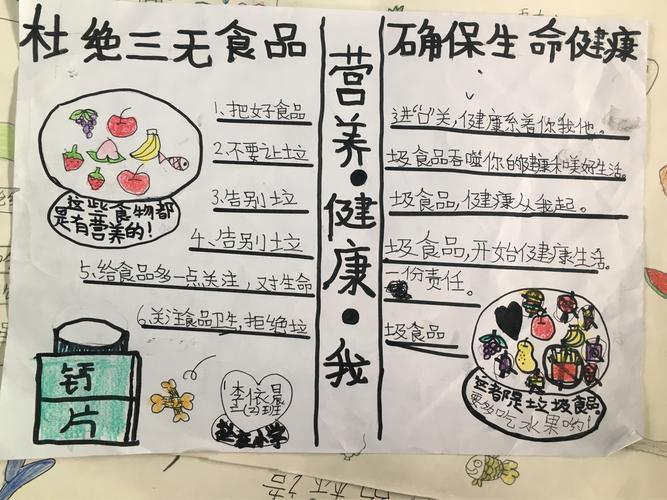 杜绝三无食品
确保生命健康
营养·健康·我
1、把好食品
进“口”关,健康系着你我他。
2、不要让垃
圾食品吞噬你的健康和美好生活。
3、告别垃
圾食品,健康从我起。
4、告别垃
圾食品,开始健康生活。
5、给食品多一点关注,对生命
一份责任。
6、关注食品卫生,拒绝垃
圾食品
这些食物都
是有营养的!
钙
片
李依晨
小学
这都是垃圾食品。
要多吃水果哟!